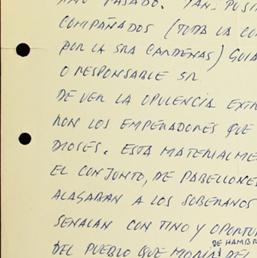 PASADO. TAN. POSIT
COMPAÑADOS (TODA LA CO
POR LA SRA CARDENAS) GUIA
O RESPONSABLE SR
DE VER LA OPULENCIA EXTR
RON LOS EMPERADORES QUE
DIOSES. ESTA MATERIALME
EL CONJUNTO, DE PABELLONE
ALAGABAN A LOS SOBERANOS
SEÑALAN CON TINO Y OPORTU
DE HAMBR
DEL PUEBLO QUE MORIA DEL